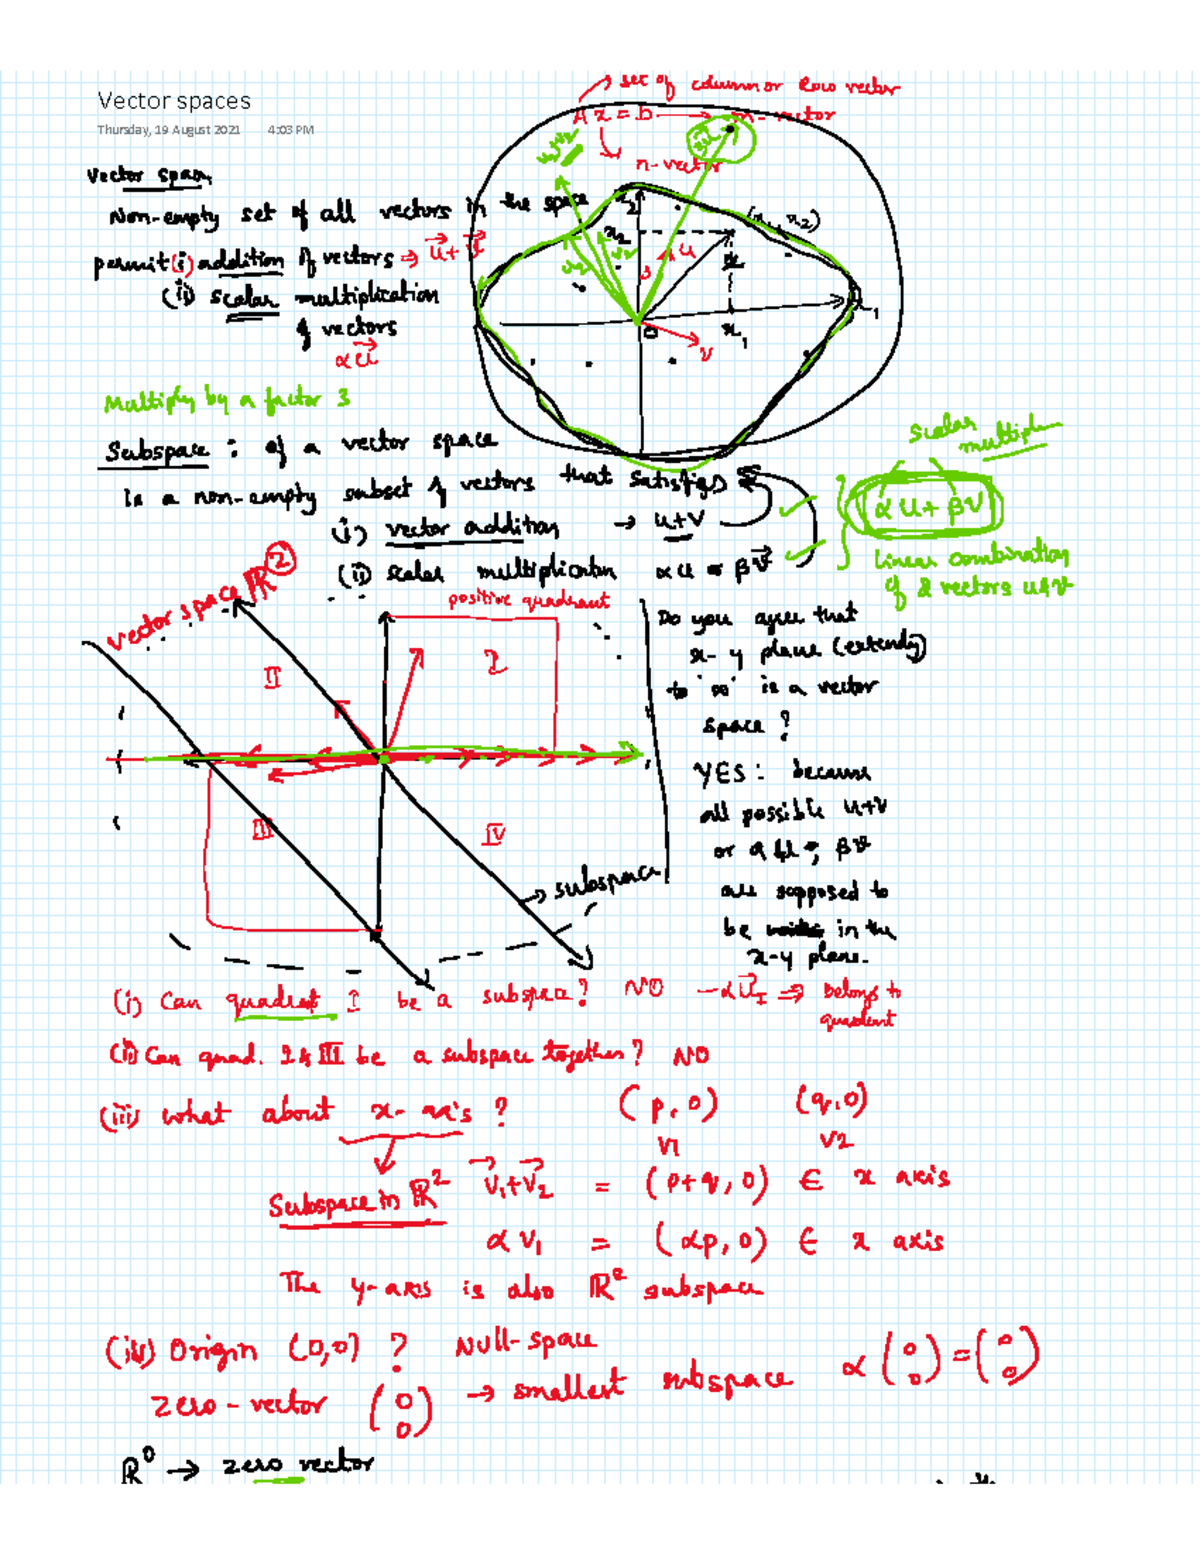 Vector spaces
Thursday, 19 August 2021 4:03 PM
→ set of column or Row vector
Ax = b → m-vector
n-vector
Vector space
Non-empty set of all vectors in the space
permit (i) addition of vectors ⇒ u +
(ii) scalar multiplication
of vectors
αu
x2
x2
(x1, x2)
3
u
v
x1
x1
Multiply by a factor 3
Subspace : of a vector space
is a non-empty subset of vectors that satisfies
(i) vector addition → u+v
(ii) scalar multiplication αu or βv
scalar
αu + βv
linear combination
of 2 vectors u & v
vector space ℝ²
positive quadrant
I
II
III
IV
→ subspace
Do you agree that
x-y plane (extending)
to '∞' is a vector
space ?
YES : because
all possible u+v
or αu, βv
are supposed to
be in the
x-y plane.
(i) Can quadrant I be a subspace? NO -αu_I ⇒ belongs to
quadrant
(ii) Can quad. I & III be a subspace together? NO
(iii) what about x-axis ? (p,0) (q,0)
v1 v2
Subspace in ℝ² v1+v2 = (p+q, 0) ∈ x axis
αv1 = (αp, 0) ∈ x axis
The y-axis is also ℝ² subspace
(iv) Origin (0,0) ? Null-space
zero-vector (0 0) → smallest subspace α (0 0) = (0 0)
ℝ⁰ → zero vector